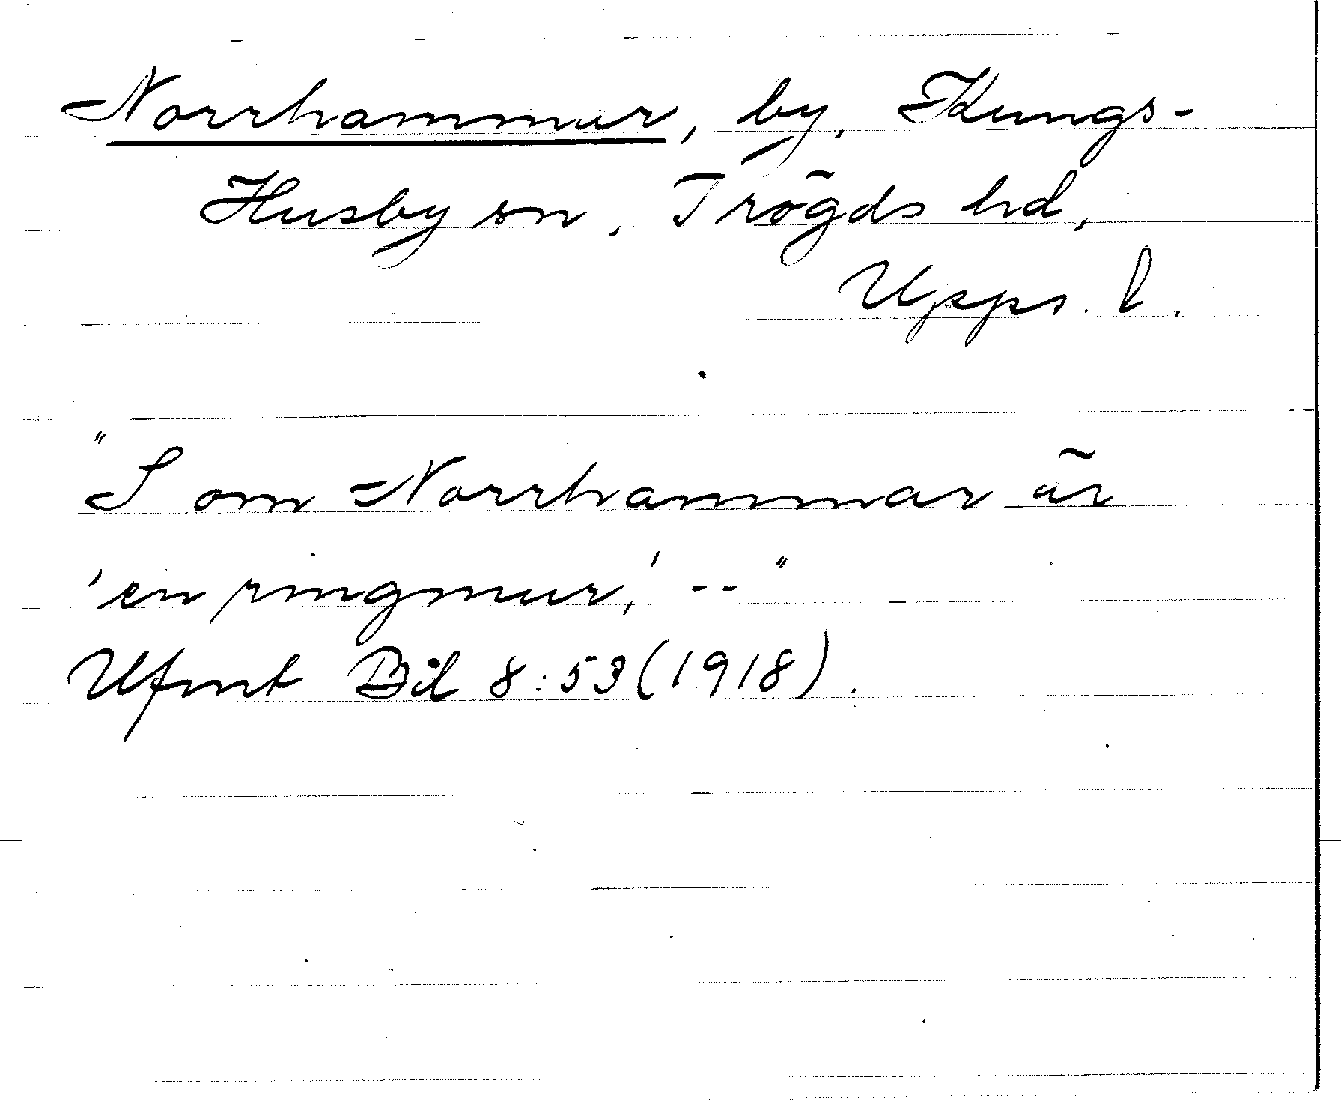 Norrhammar, by, Kungs-
Husby sn, Trögds hd,
Upps. l.
"S om Norrhammar är
'en ringmur,' --"
Ufmt Bil 8:53 (1918).